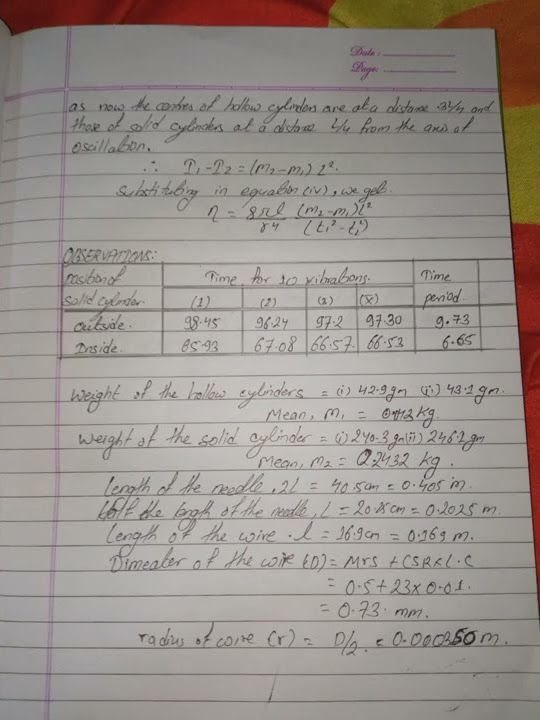 Date :
Page:
as now the centres of hollow cylinders are at a distance 3L/4 and
those of solid cylinders at a distance L/4 from the axis of
oscillation.
∴ I₁-I₂ = (m₂-m₁) l².
substituting in equation (iv), we get.
η = 8πl/r⁴ (m₂-m₁)l²/(t₁²-t₂²)
OBSERVATIONS:
Position of solid cylinder | Time for 10 vibrations. | Time period.
(1) | (2) | (3) | (x)
outside. | 98.45 | 96.24 | 97.2 | 97.30 | 9.73
Inside. | 65.93 | 67.08 | 66.57 | 66.53 | 6.65
Weight of the hollow cylinders = (i) 42.9gm (ii) 43.1 gm.
Mean, m₁ = kg.
Weight of the solid cylinder = (i) 240.3 gm (ii) 246.1 gm
Mean, m₂ = 0.2432 kg.
length of the needle, 2L = 40.5cm = 0.405 m.
Half the length of the needle, L = 20.25cm = 0.2025 m.
Length of the wire . l = 16.9cm = 0.169 m.
Dimeater of the wire (D) = MrS + CSR x L.C
= 0.5 + 23 x 0.01.
= 0.73. mm.
radius of wire (r) = D/2. = m.